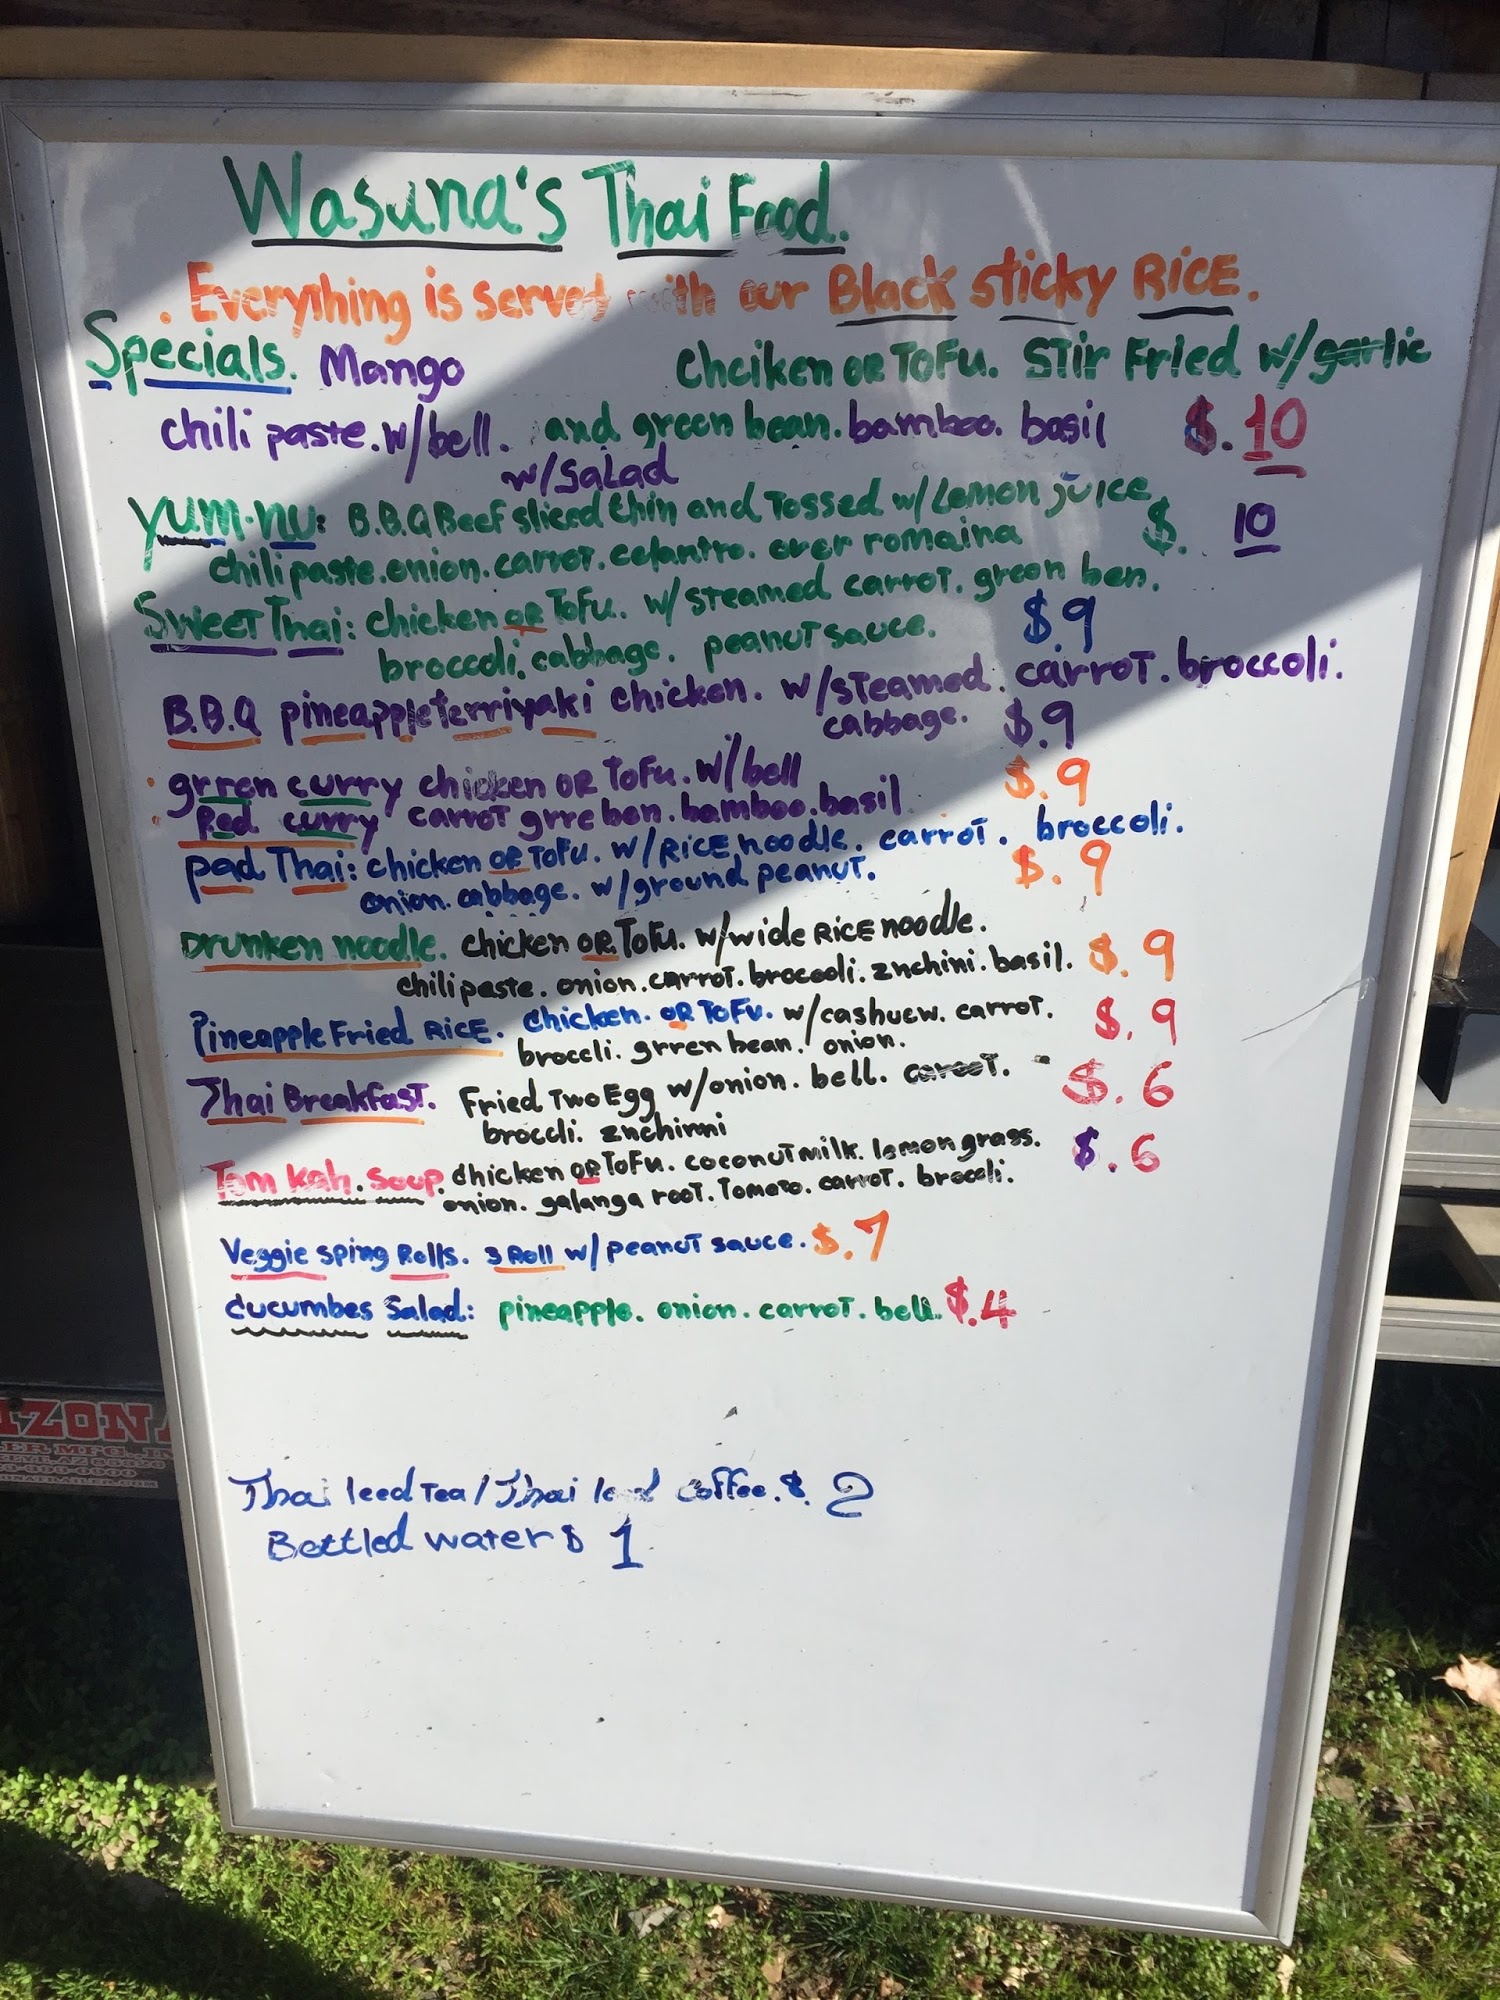 Wasuna's Thai Food.
. Everything is served with our Black sticky RICE.
Specials. Mango Chciken OR ToFu. Stir Fried w/garlic
chili paste. w/bell. and green bean. bamboo. basil $.10
w/salad
yum.nu: B.B.Q Beef sliced thin and Tossed w/Lemon juice
chili paste. onion. carrot. celantro. over romaina $. 10
Sweet Thai: chicken OR ToFu. w/steamed carrot. green ben.
broccoli. cabbage. peanut sauce. $.9
B.B.Q pineapple terriyaki chicken. w/steamed. carrot. broccoli.
cabbage. $.9
grren curry chicken OR ToFu. w/bell $.9
Red curry carrot grre ben. bamboo. basil
pad Thai: chicken OR ToFu. w/RICE noodle. carrot. broccoli.
onion. cabbage. w/ground peanut. $.9
Drunken noodle. chicken OR ToFu. w/wide RICE noodle.
chili paste. onion. carrot. brocooli. znchini. basil. $.9
Pineapple Fried RICE. chicken. OR ToFu. w/cashuew. carrot. $.9
broccli. grren bean. onion.
Thai Breakfast. Fried Two Egg w/onion. bell. carrot. $.6
broccli. znchinni
Tom Kah. Soup. chicken OR ToFu. coconut milk. lemon grass. $.6
onion. galanga root. Tomato. carrot. brocoli.
Veggie sping Rolls. 3 Roll w/peanut sauce. $.7
cucumbes Salad: pineapple. onion. carrot. bell. $.4
Thai Iced Tea/Thai Iced coffee. $. 2
Bottled water $ 1
IZONA